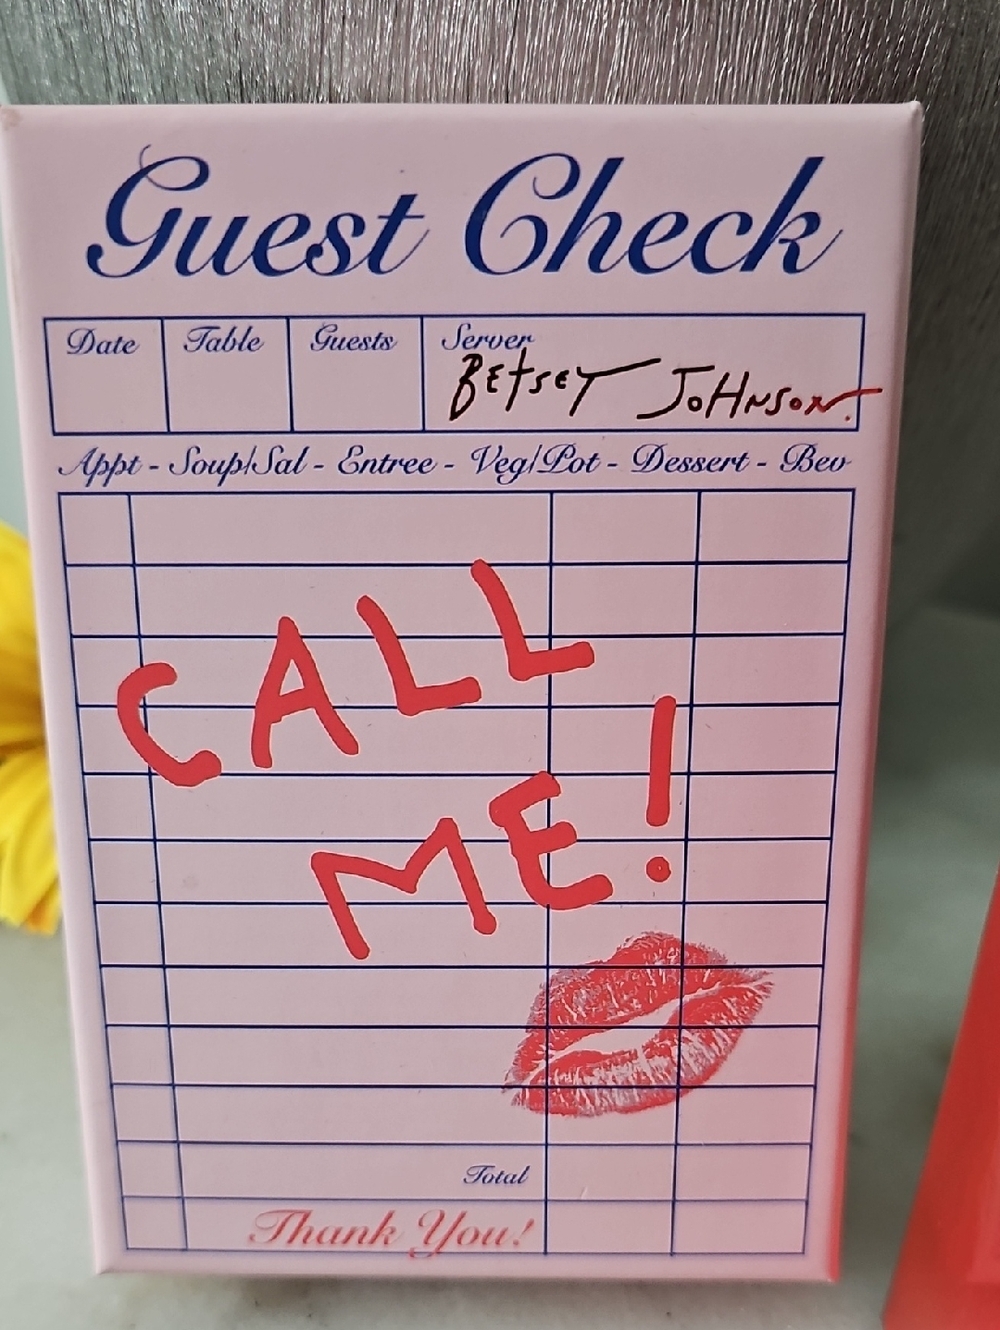 Guest Check
Date Table Guests Server
BETSEY JOHNSON.
Appt - Soup/Sal - Entree - Veg/Pot - Dessert - Bev
CALL
ME!
Total
Thank You!